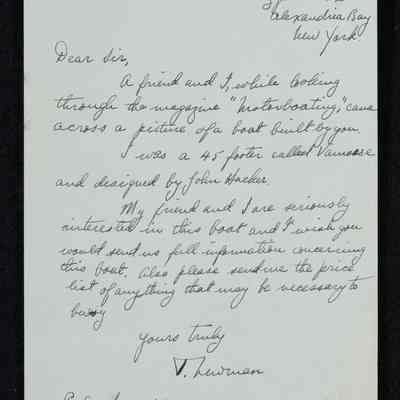 Alexandria Bay
New York.
Dear Sir,
A friend and I, while looking
through the magazine "Motorboating," came
across a picture of a boat built by you.
I was a 45 footer called Vamoose
and designed by John Hacker.
My friend and I are seriously
interested in this boat and I wish you
would send us full information concerning
this boat. Also please send me the price
list of anything that may be necessary to
buy
Yours truly
T. Newman